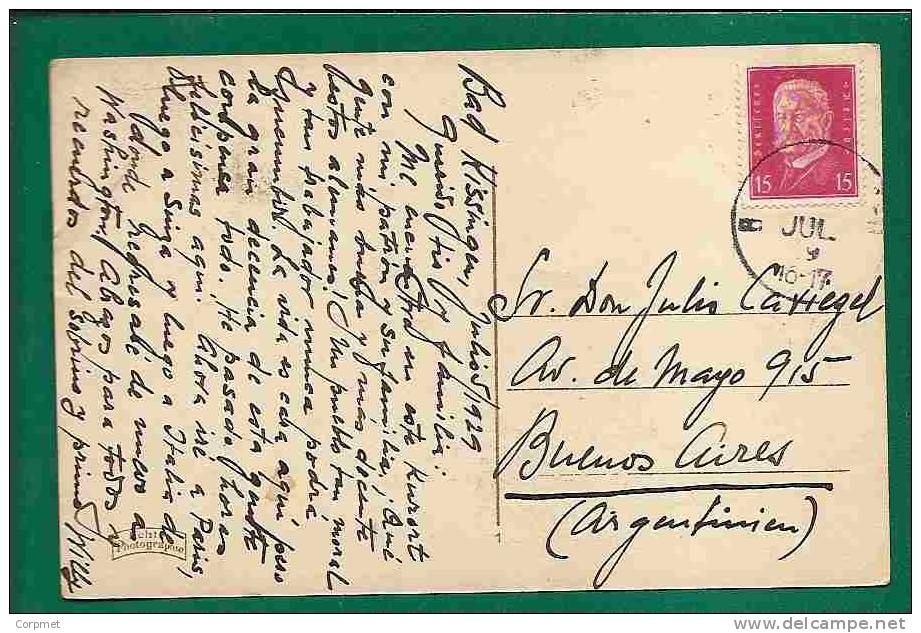 Bad Kissingen, Julio 5/1929
Querido tio y familia:
Me encuentro en este Kurort
con mi patron y su familia. Qué
gente más buena y mas decente
estos alemanes! Un pueblo tan moral
y tan trabajador nunca podrá
La vida es cara aqui pero
la gran decencia de esta gente
compensa todo. He pasado horas
felicisimas aqui. Ahora iré a Paris,
luego a Suiza y luego a Italia de
donde regresaré de nuevo a
Washington. Abrazos para todos y
recuerdos del sobrino y primo Willy
Echte
Photographie
DEUTSCHES REICH
15 15
JUL
9
16-17
Sr. Don Julio Carregel
Av. de Mayo 915
Buenos Aires
(Argentinien)
Corpmet
www.delcampe.net